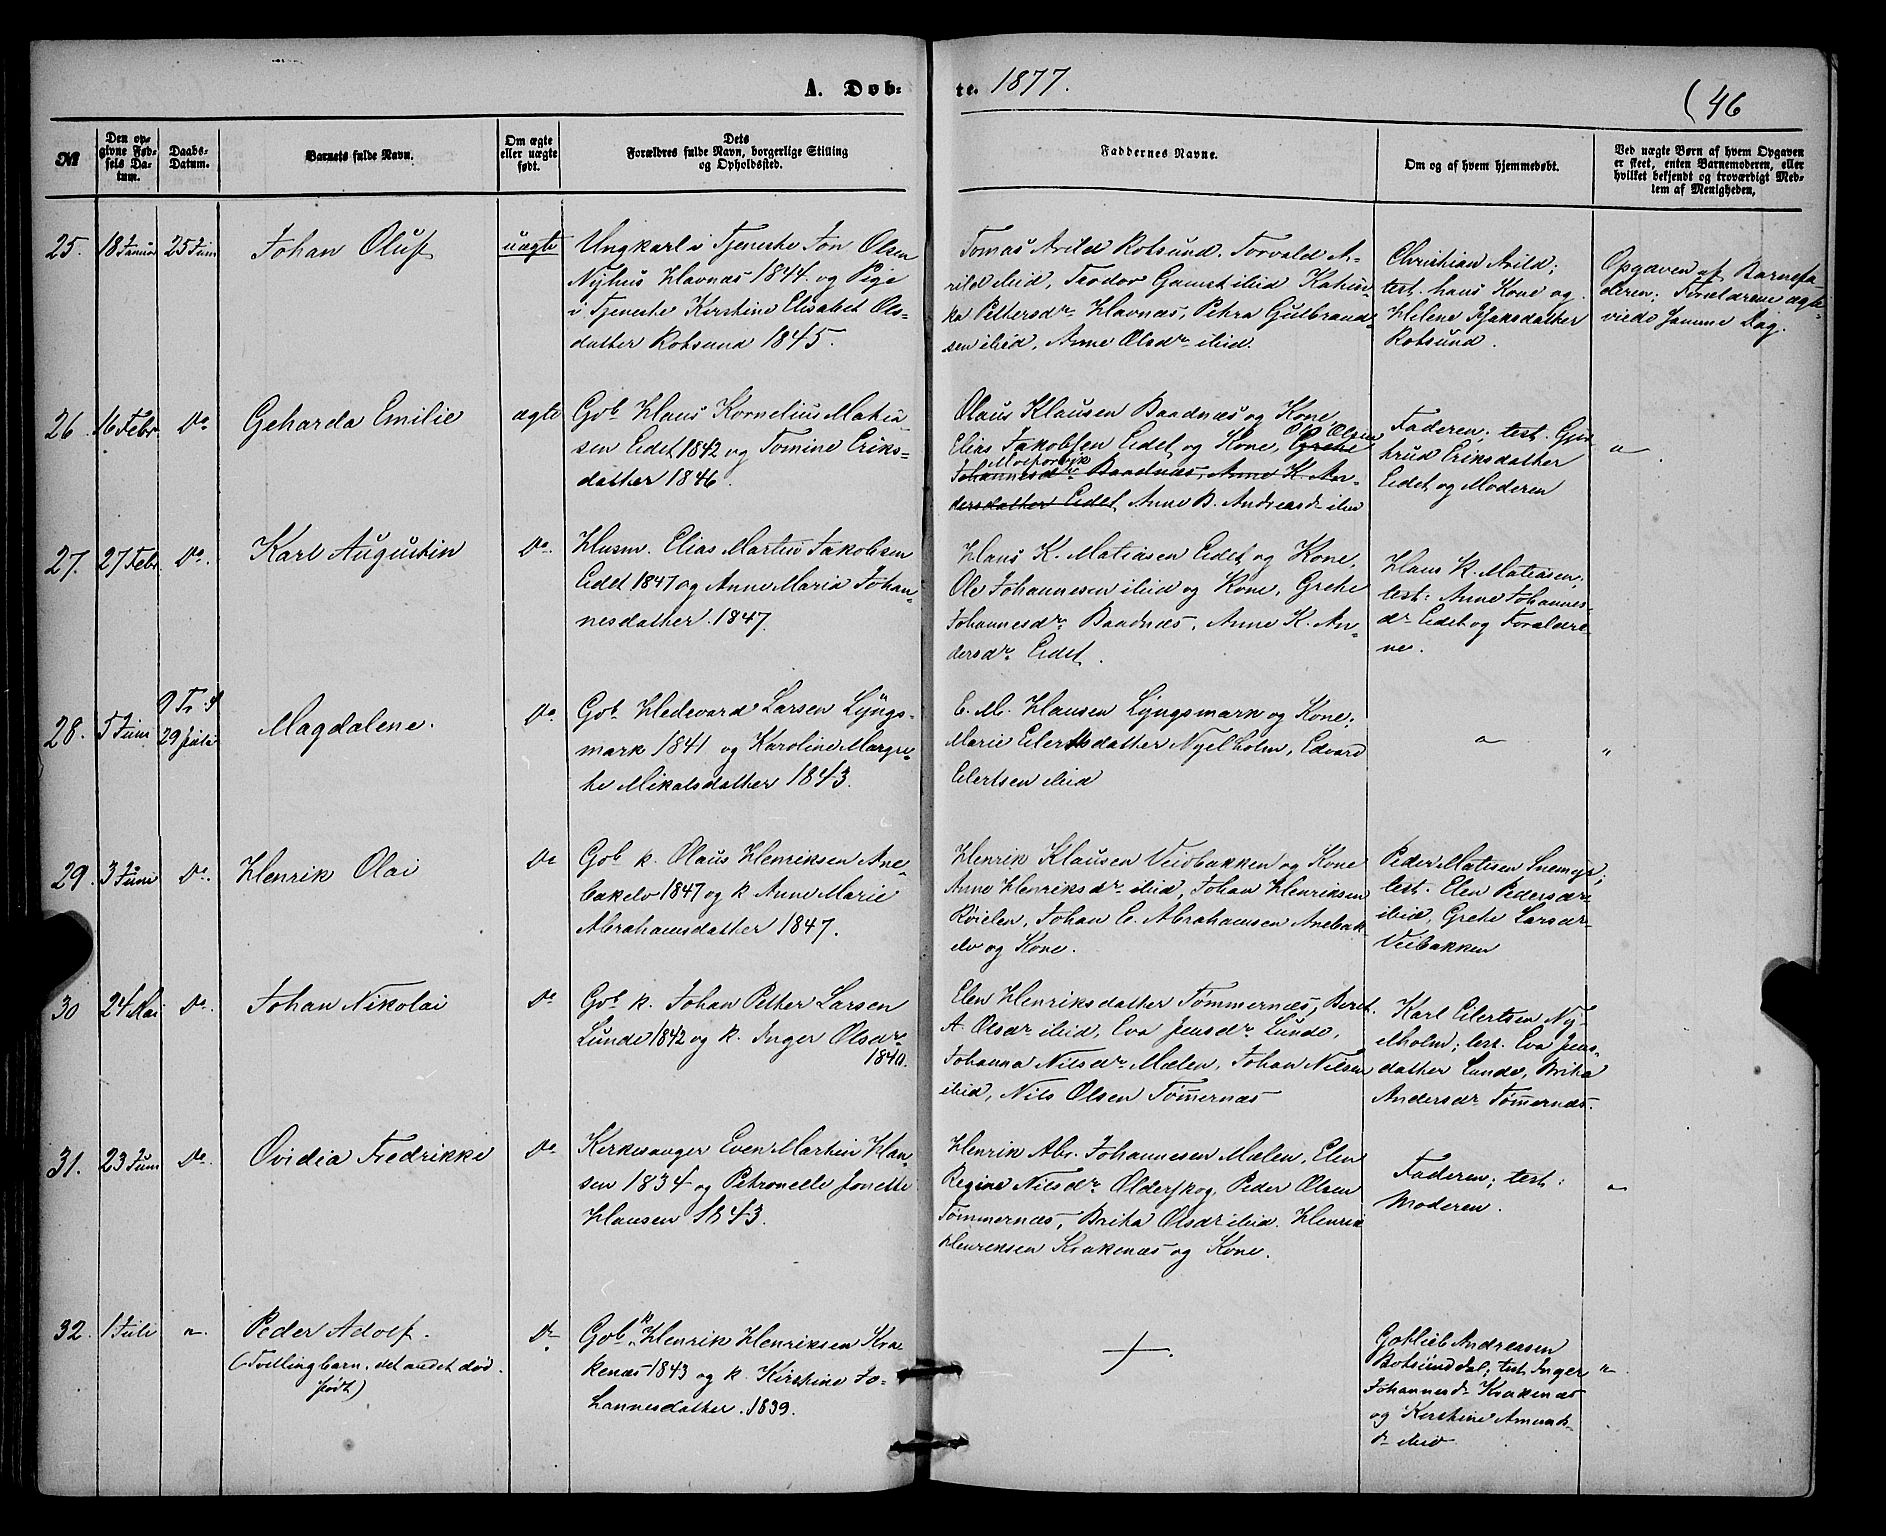 A. Døb-
te. 1877.
(46
№
Den op-
givne Fød-
sels Da-
tum.
Daabs-
Datum.
Barnets fulde Navn.
Om ægte
eller uægte
født.
Dets
Forældres fulde Navn, borgerlige Stilling
og Opholdssted.
Faddernes Navne.
Om og af hvem hjemmedøbt.
Ved uægte Børn af hvem Opgaven
er skeet, enten Barnemoderen, eller
hvilket bekjendt og troværdigt Med-
lem af Menigheden,
25.
18 Januar
25 Juni
Johan Oluf
uægte
Ungkarl i Tjeneste Jon Olsen
Nyhus Havnæs 1844. og Pige
i Tjeneste Kirstine Elisabet Ols-
datter Rotsund 1845.
Tomas Arild Rotsund. Torvald A-
rild ibid, Trodor Gamst ibid
ka Pettersdr. Havnæs, Petra Gulbrand-
sen ibid, Anne Olsdr ibid.
Christian Arild;
test. hans Kone og
Helene Isaksdatter
Rotsund.
Opgaven af Barnefa-
deren; Forældrene ægte-
viede samme Dag.
26
16 Febr.
Do
Geharda Emilie
ægte
Gbr Hans Kornelius Matia
sen Eidet 1842 og Tomine Eriks-
datter 1846.
Olaus Klausen Baadnæs og Kone
Elias Jakobsen Eidet og Kone, Grethe
Johannesdr Baadnæs, Anne K. An-
dersdatter Eidet, Anne B. Andreasdr ibid
Faderen; test. Gju
trud Eriksdatter
Eidet og Moderen
"
27.
27 Febr
Do.
Karl Augustin
Do.
Husm. Elias Martin Jakobsen
Eidet 1847 og Anne Maria Johan-
nesdatter. 1847.
Hans K. Matiasen Eidet og Kone,
Ole Johannesen ibid og Kone, Grethe
Johannesdr. Baadnæs, Anne K. An-
dersdr. Eidet.
Hans K. Matiasen;
test: Anne Johannes-
dr Eidet og Forældre-
ne.
28.
5 Juni
29 Juli
Magdalene.
Do
Gbr. Hedevard Larsen Lyngs-
mark 1841 og Karoline Margre-
te Mikalsdatter 1843.
C. M. Hansen Lyngsmark og Kone,
Marie Eilertsdatter Nyelholm, Edvard
Eilertsen ibid
"
"
29.
3 Juni
Do.
Henrik Olai
Do
Gbr k. Olaus Henriksen Ane-
bakelv 1847 og k Anne Marie
Abrahamsdatter 1847.
Henrik Klausen Veidbakken og Kone
Anne Henriksdr ibid, Johan Henriksen
Røielen, Johan C. Abrahamsen Anebak-
elv og Kone.
Peder Matisen Snemyr;
test. Elen Pedersdr
ibid, Grete Larsdr
Veibakken
30
24 Mai
Do.
Johan Nikolai
Do
Gbr k. Johan Petter Larsen
Lunde 1842 og k. Inger Olsdr.
1840.
Elen Henriksdatter Tømmernæs, Beret
A. Olsdr ibid, Eva Jensdr Lunde,
Johanna Nilsdr. Mælen, Johan Nilsen
ibid, Nils Olsen Tømernæs
Karl Eilertsen Ny-
elholm; test. Eva Jens-
datter Lunde, Brita
Andersdr Tømernæs.
31.
23 Juni
Do.
Ovidia Fredrikke
Do
Kirkesanger Even Martin Han-
sen 1834 og Petronelle Jonette
Hansen 1843.
Henrik Abr. Johannesen Mælen, Elen
Regine Nilsdr. Olderskog, Peder Olsen
Tømmernæs, Brita Olsdr ibid. Henrik
Henriksen Krakenæs og Kone.
Faderen; test:
Moderen.
"
32.
1 Juli
"
Peder Adolf.
(Tvillingbarn, det andet død-
født)
Do
Gbr k Henrik Henriksen Kra
kenæs 1843 og k. Kirstine Jo-
hannesdatter. 1839.
+.
Gotlieb Andreasen
Rotsunddal; test. Inger
Johannesdr Krakenæs
og Kirstine Amunds-
dr ibid
"